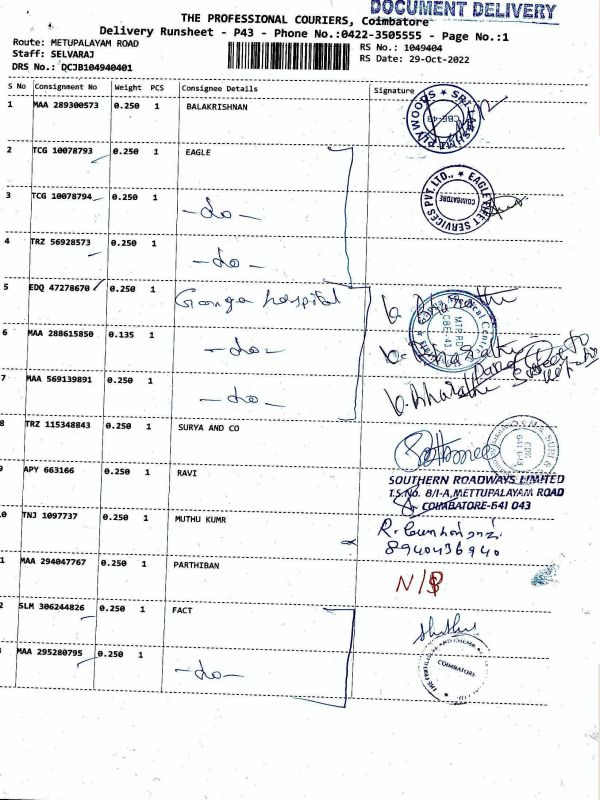 DOCUMENT DELIVERY
THE PROFESSIONAL COURIERS, Coimbatore
Delivery Runsheet - P43 - Phone No.:0422-3505555 - Page No.:1
Route: METUPALAYAM ROAD
Staff: SELVARAJ
DRS No.: DCJB104940401
RS No.: 1049404
RS Date: 29-Oct-2022
S No Consignment No Weight PCS Consignee Details Signature
1 MAA 289300573 0.250 1 BALAKRISHNAN
2 TCG 10078793 0.250 1 EAGLE
3 TCG 10078794 0.250 1 -do-
4 TRZ 56928573 0.250 1 -do-
5 EDQ 47278670 0.250 1 Ganga hospital
6 MAA 288615850 0.135 1 -do-
7 MAA 569139891 0.250 1 -do-
8 TRZ 115348843 0.250 1 SURYA AND CO
9 APY 663166 0.250 1 RAVI
SOUTHERN ROADWAYS LIMITED
T.S.No. 8/1-A, METTUPALAYAM ROAD
COIMBATORE-641 043
0 TNJ 1097737 0.250 1 MUTHU KUMR
8940436940
1 MAA 294047767 0.250 1 PARTHIBAN
2 SLM 306244826 0.250 1 FACT
MAA 295280795 0.250 1 -do-
COIMBATORE